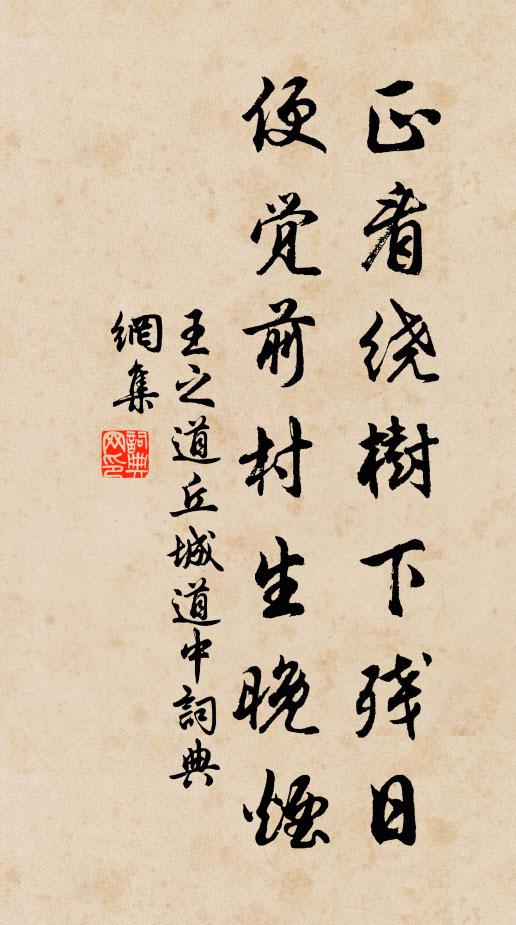 正看绕樹下残日
便觉前村生晚煙
王之道丘城道中詞典
網集
詞典网印